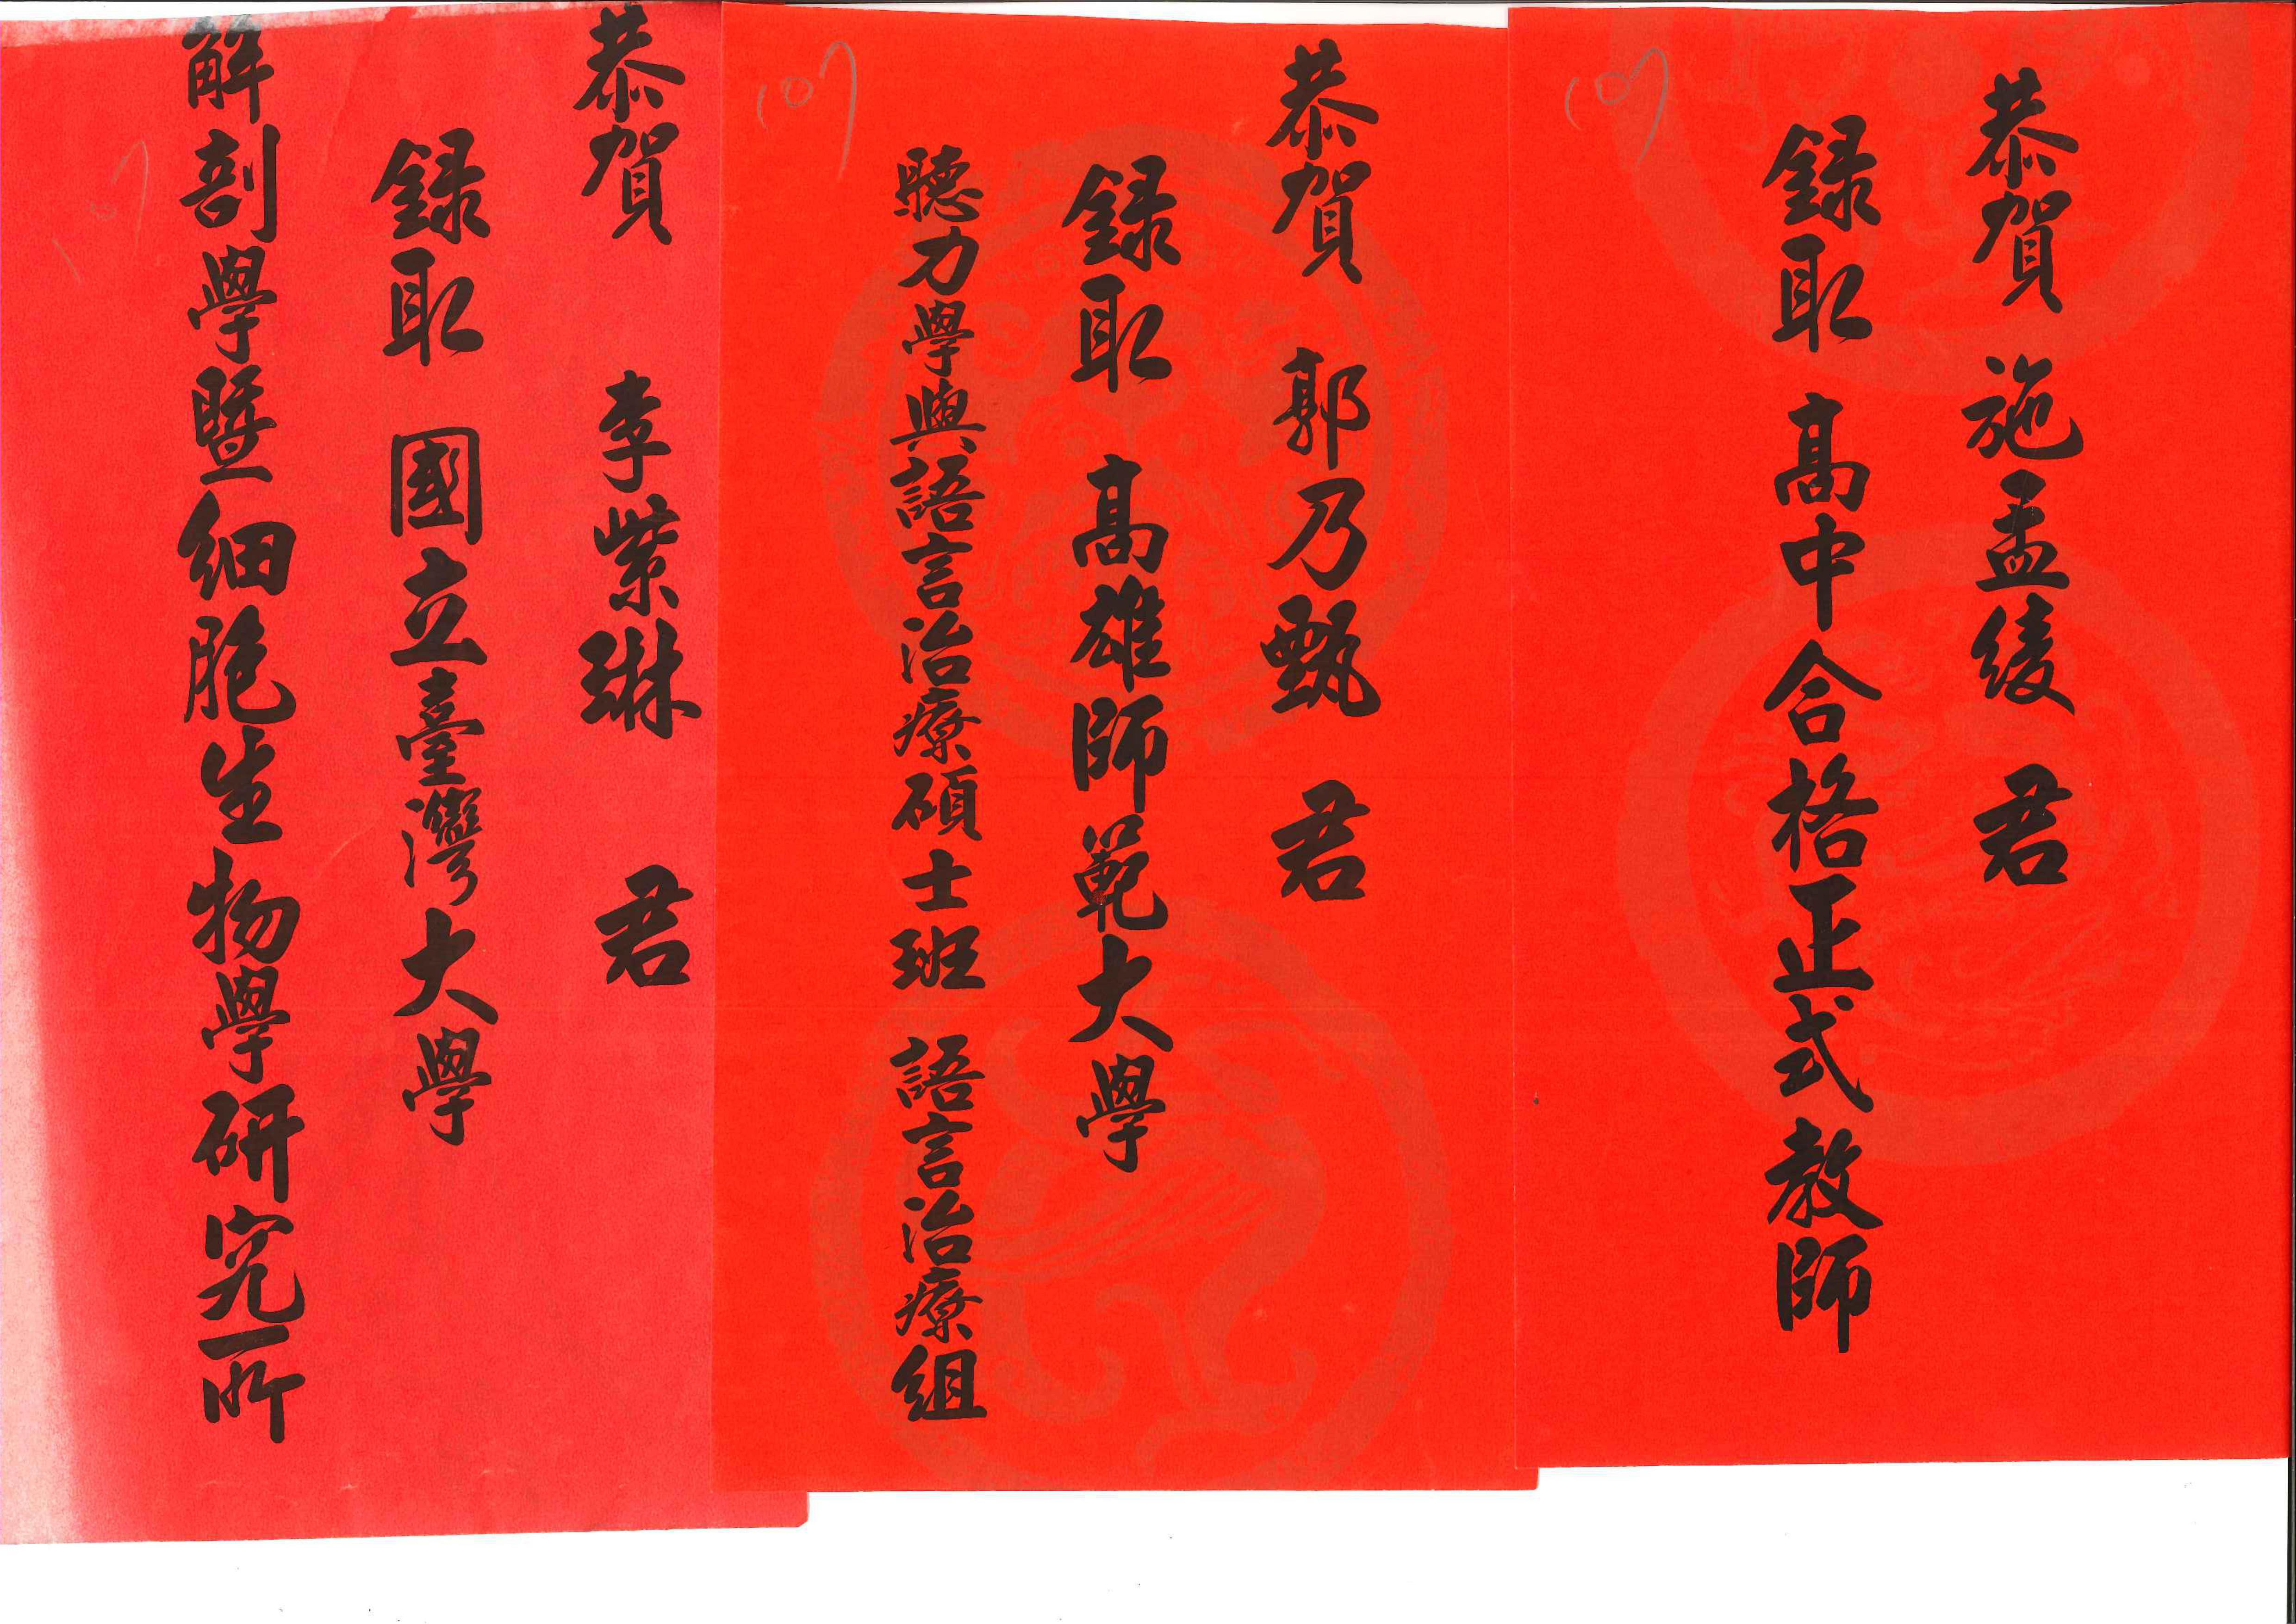 恭賀 施孟綾 君
錄取 高中合格正式教師
107
恭賀 郭乃甄 君
錄取 高雄師範大學
聽力學與語言治療碩士班 語言治療組
107
恭賀 李紫琳 君
錄取 國立臺灣大學
解剖學暨細胞生物學研究所
107